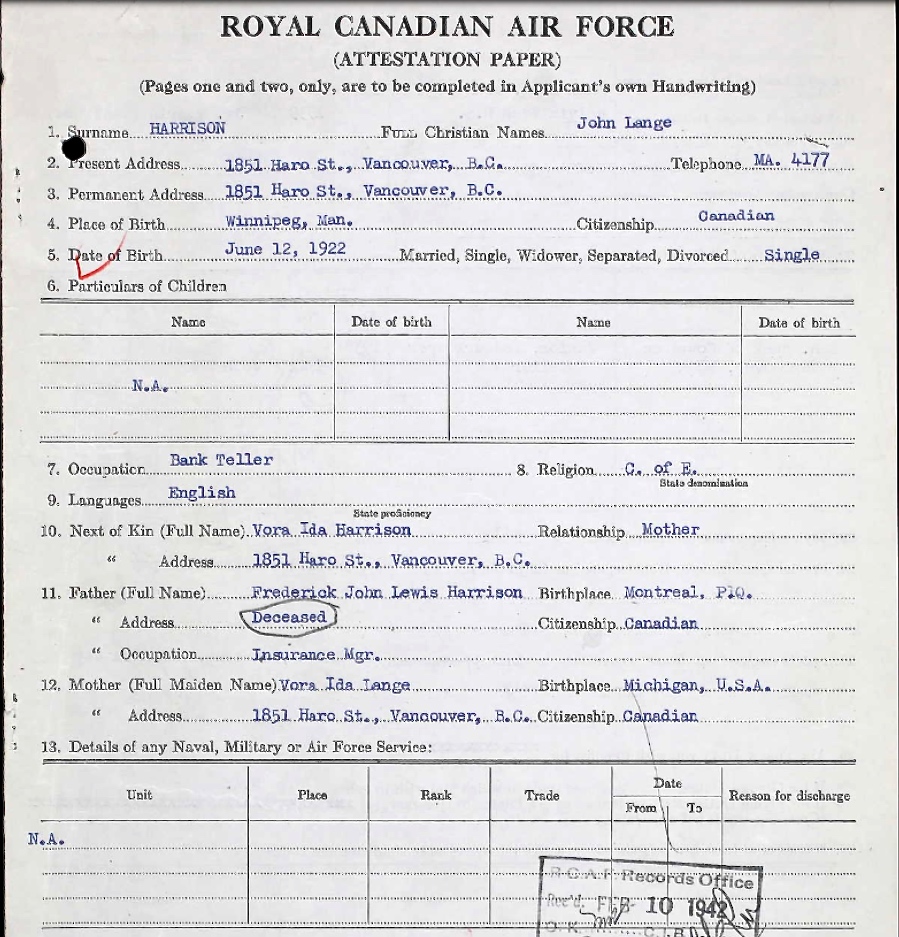 ROYAL CANADIAN AIR FORCE
(ATTESTATION PAPER)
(Pages one and two, only, are to be completed in Applicant's own Handwriting)
1. Surname HARRISON Full Christian Names John Lange
2. Present Address 1851 Haro St., Vancouver, B.C. Telephone MA. 4177
3. Permanent Address 1851 Haro St., Vancouver, B.C.
4. Place of Birth Winnipeg, Man. Citizenship Canadian
5. Date of Birth June 12, 1922 Married, Single, Widower, Separated, Divorced Single
6. Particulars of Children
Name Date of birth Name Date of birth
N.A.
7. Occupation Bank Teller 8. Religion C. of E.
State denomination
9. Languages English
State proficiency
10. Next of Kin (Full Name) Vora Ida Harrison Relationship Mother
" Address 1851 Haro St., Vancouver, B.C.
11. Father (Full Name) Frederick John Lewis Harrison Birthplace Montreal, P.Q.
" Address Deceased Citizenship Canadian
" Occupation Insurance Mgr.
12. Mother (Full Maiden Name) Vora Ida Lange Birthplace Michigan, U.S.A.
" Address 1851 Haro St., Vancouver, B.C. Citizenship Canadian
13. Details of any Naval, Military or Air Force Service:
Unit Place Rank Trade Date Reason for discharge
From To
N.A.
R.C.A.F. Records Office
Rec'd. FEB 10 1942
O.K.